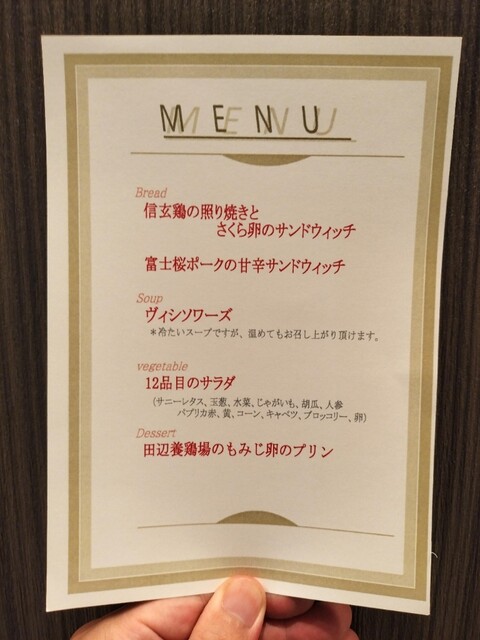 MENU
Bread
信玄鶏の照り焼きと
さくら卵のサンドウィッチ
富士桜ポークの甘辛サンドウィッチ
Soup
ヴィシソワーズ
＊冷たいスープですが、温めてもお召し上がり頂けます。
vegetable
12品目のサラダ
(サニーレタス、玉葱、水菜、じゃがいも、胡瓜、人参
パプリカ赤、黄、コーン、キャベツ、ブロッコリー、卵)
Dessert
田辺養鶏場のもみじ卵のプリン